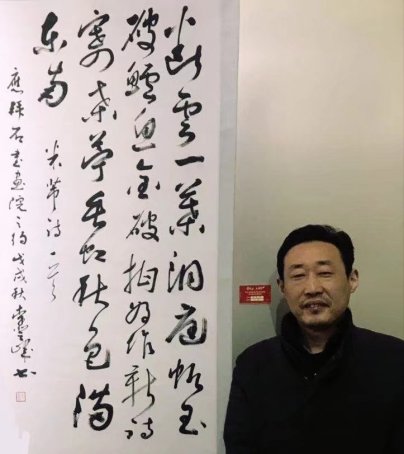 断雲一葉洞庭帆玉
破鱸魚金破柑好作新詩
寄桑苧垂虹秋色满
东南
米芾诗一首
應石书画院之约戊戌秋书